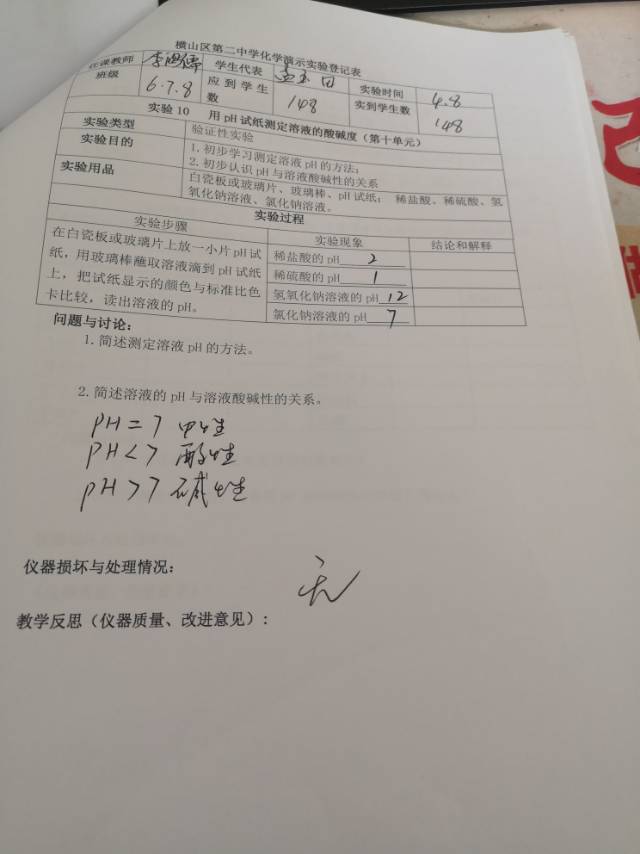 横山区第二中学化学演示实验登记表
任课教师 学生代表 实验时间 4.8
班级 6.7.8 应到学生数 148 实到学生数 148
实验10 用pH试纸测定溶液的酸碱度（第十单元）
实验类型 验证性实验
实验目的 1.初步学习测定溶液pH的方法；
2.初步认识pH与溶液酸碱性的关系
实验用品 白瓷板或玻璃片、玻璃棒、pH试纸； 稀盐酸、稀硫酸、氢
氧化钠溶液、氯化钠溶液。
实验过程
实验步骤 实验现象 结论和解释
在白瓷板或玻璃片上放一小片pH试
纸，用玻璃棒蘸取溶液滴到pH试纸
上，把试纸显示的颜色与标准比色
卡比较，读出溶液的pH。
稀盐酸的pH 2
稀硫酸的pH 1
氢氧化钠溶液的pH 12
氯化钠溶液的pH 7
问题与讨论：
1.简述测定溶液pH的方法。
2.简述溶液的pH与溶液酸碱性的关系。
PH=7 中性
PH<7 酸性
PH>7 碱性
仪器损坏与处理情况： 无
教学反思（仪器质量、改进意见）：